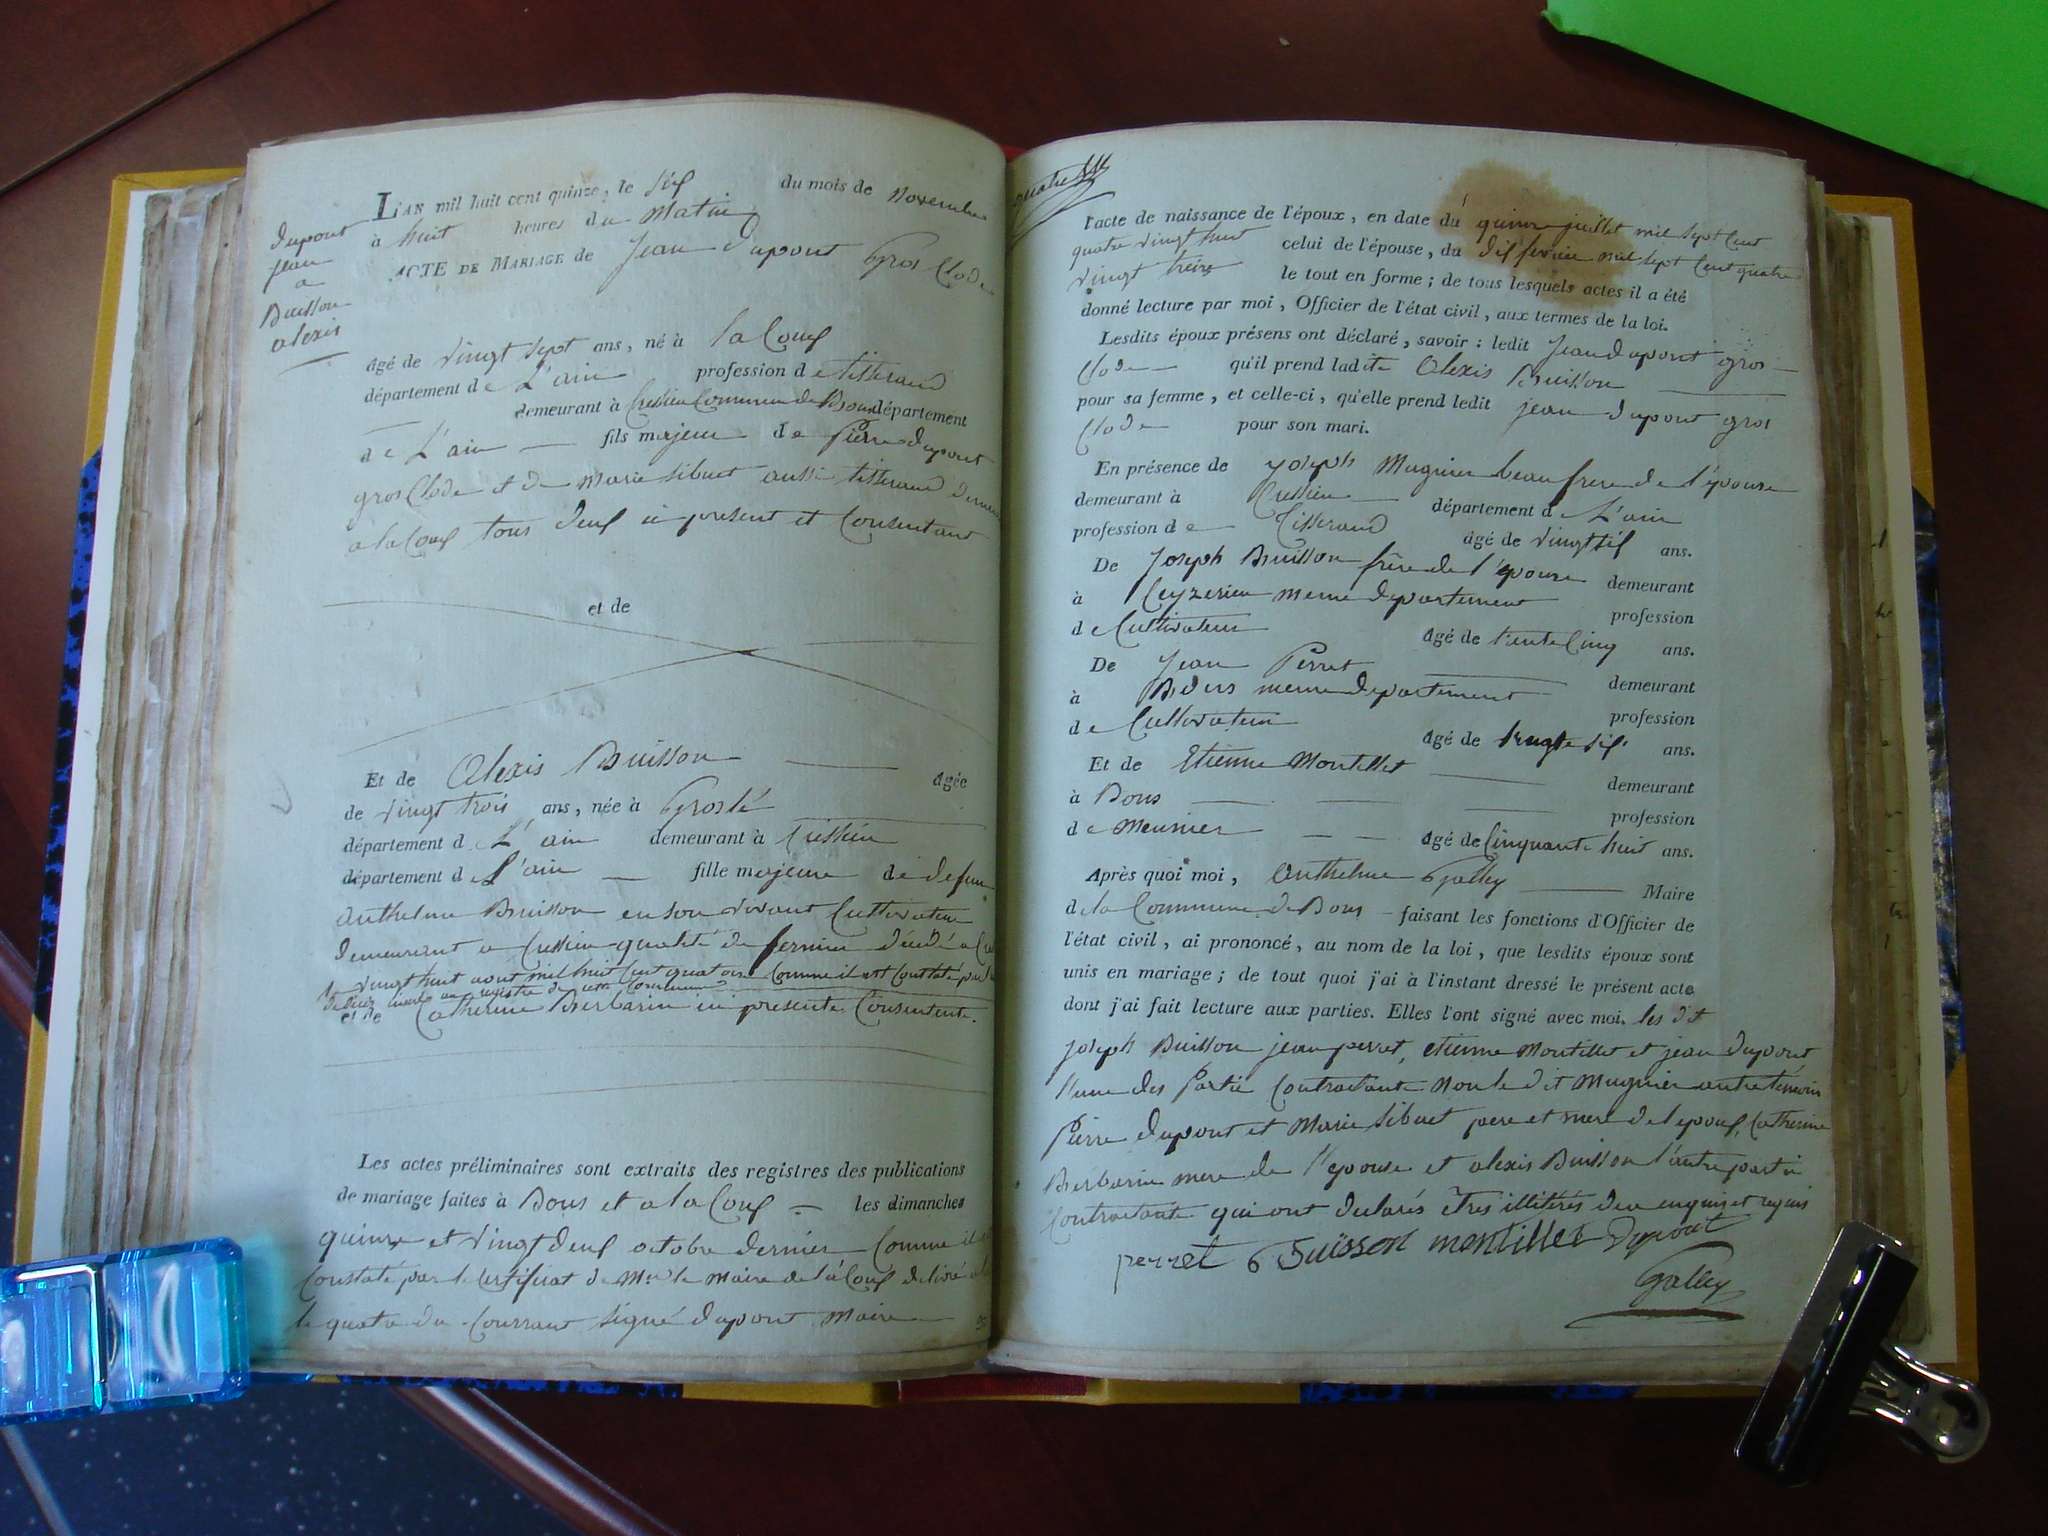 dupont
jean
a
Buisson
alexis
L'AN mil huit cent quinze, le six du mois de novembre
à huit heures du matin
ACTE DE MARIAGE de Jean dupont Gros Clode
âgé de vingt sept ans, né à la Coux
département de L'ain profession de tisserand
demeurant à Cressieu Commune de Bons département
de L'ain fils majeur de Pierre dupont
gros Clode et de Marie sibuet aussi tisserand
a la Coux tous deux ici present et Consentant
et de
Et de Alexis Buisson agée
de vingt trois ans, née à Groslé
département d L'ain demeurant à Cressieu
département d L'ain fille majeure de defun
anthelme Buisson en son vivant Cultivateur
demeurant a Cressieu qualité de fermier décédé a
le vingt huit aout mil huit cent quatorse comme il est constaté
registre de cette Commune
et de Catherine Berbarin ici presente Consentente.
Les actes préliminaires sont extraits des registres des publications
de mariage faites à Bons et a la Coux les dimanches
quinze et vingt deux octobre dernier Comme il
Constaté par le Certificat de Mr le Maire de la Coux delivré
le quatre du Courrant signé dupont Maire
quatre
l'acte de naissance de l'époux, en date du quinze juillet mil sept cent
quatre vingt huit celui de l'épouse, du dix fevrier mil sept Cent quatre
vingt treize le tout en forme; de tous lesquels actes il a été
donné lecture par moi, Officier de l'état civil, aux termes de la loi.
Lesdits époux présens ont déclaré, savoir: ledit Jean dupont gros
Clode qu'il prend ladite Alexis Buisson
pour sa femme, et celle-ci, qu'elle prend ledit jean dupont gros
Clode pour son mari.
En présence de joseph Mugnier beau frere de l'épouse
demeurant à Cressieu département d L'ain
profession de Tisserand âgé de vingt six ans.
De Joseph Buisson frère de l'épouse demeurant
à Ceyzerieu meme departement profession
de Cultivateur âgé de trente Cinq ans.
De Jean Perret demeurant
à meme departement profession
de Cultivateur âgé de ans.
Et de Etienne Montillet demeurant
à Bons profession
de Meunier âgé de Cinquante huit ans.
Après quoi moi, Anthelme Galley Maire
de la Commune de Bons faisant les fonctions d'Officier de
l'état civil, ai prononcé, au nom de la loi, que lesdits époux sont
unis en mariage; de tout quoi j'ai à l'instant dressé le présent acte
dont j'ai fait lecture aux parties. Elles l'ont signé avec moi. les dit
joseph Buisson jean perret, etienne Montillet et jean dupont
l'une des Partie Contractante Non le dit Mugnier autre temoin
Pierre dupont et Marie sibuet pere et mere de l'epoux, Catherine
Berbarin mere de l'epouse et alexis Buisson l'autre partie
Contractante qui ont declarés etres illitérés de ce enquis et requis
perret Buisson montillet Dupont
Galley